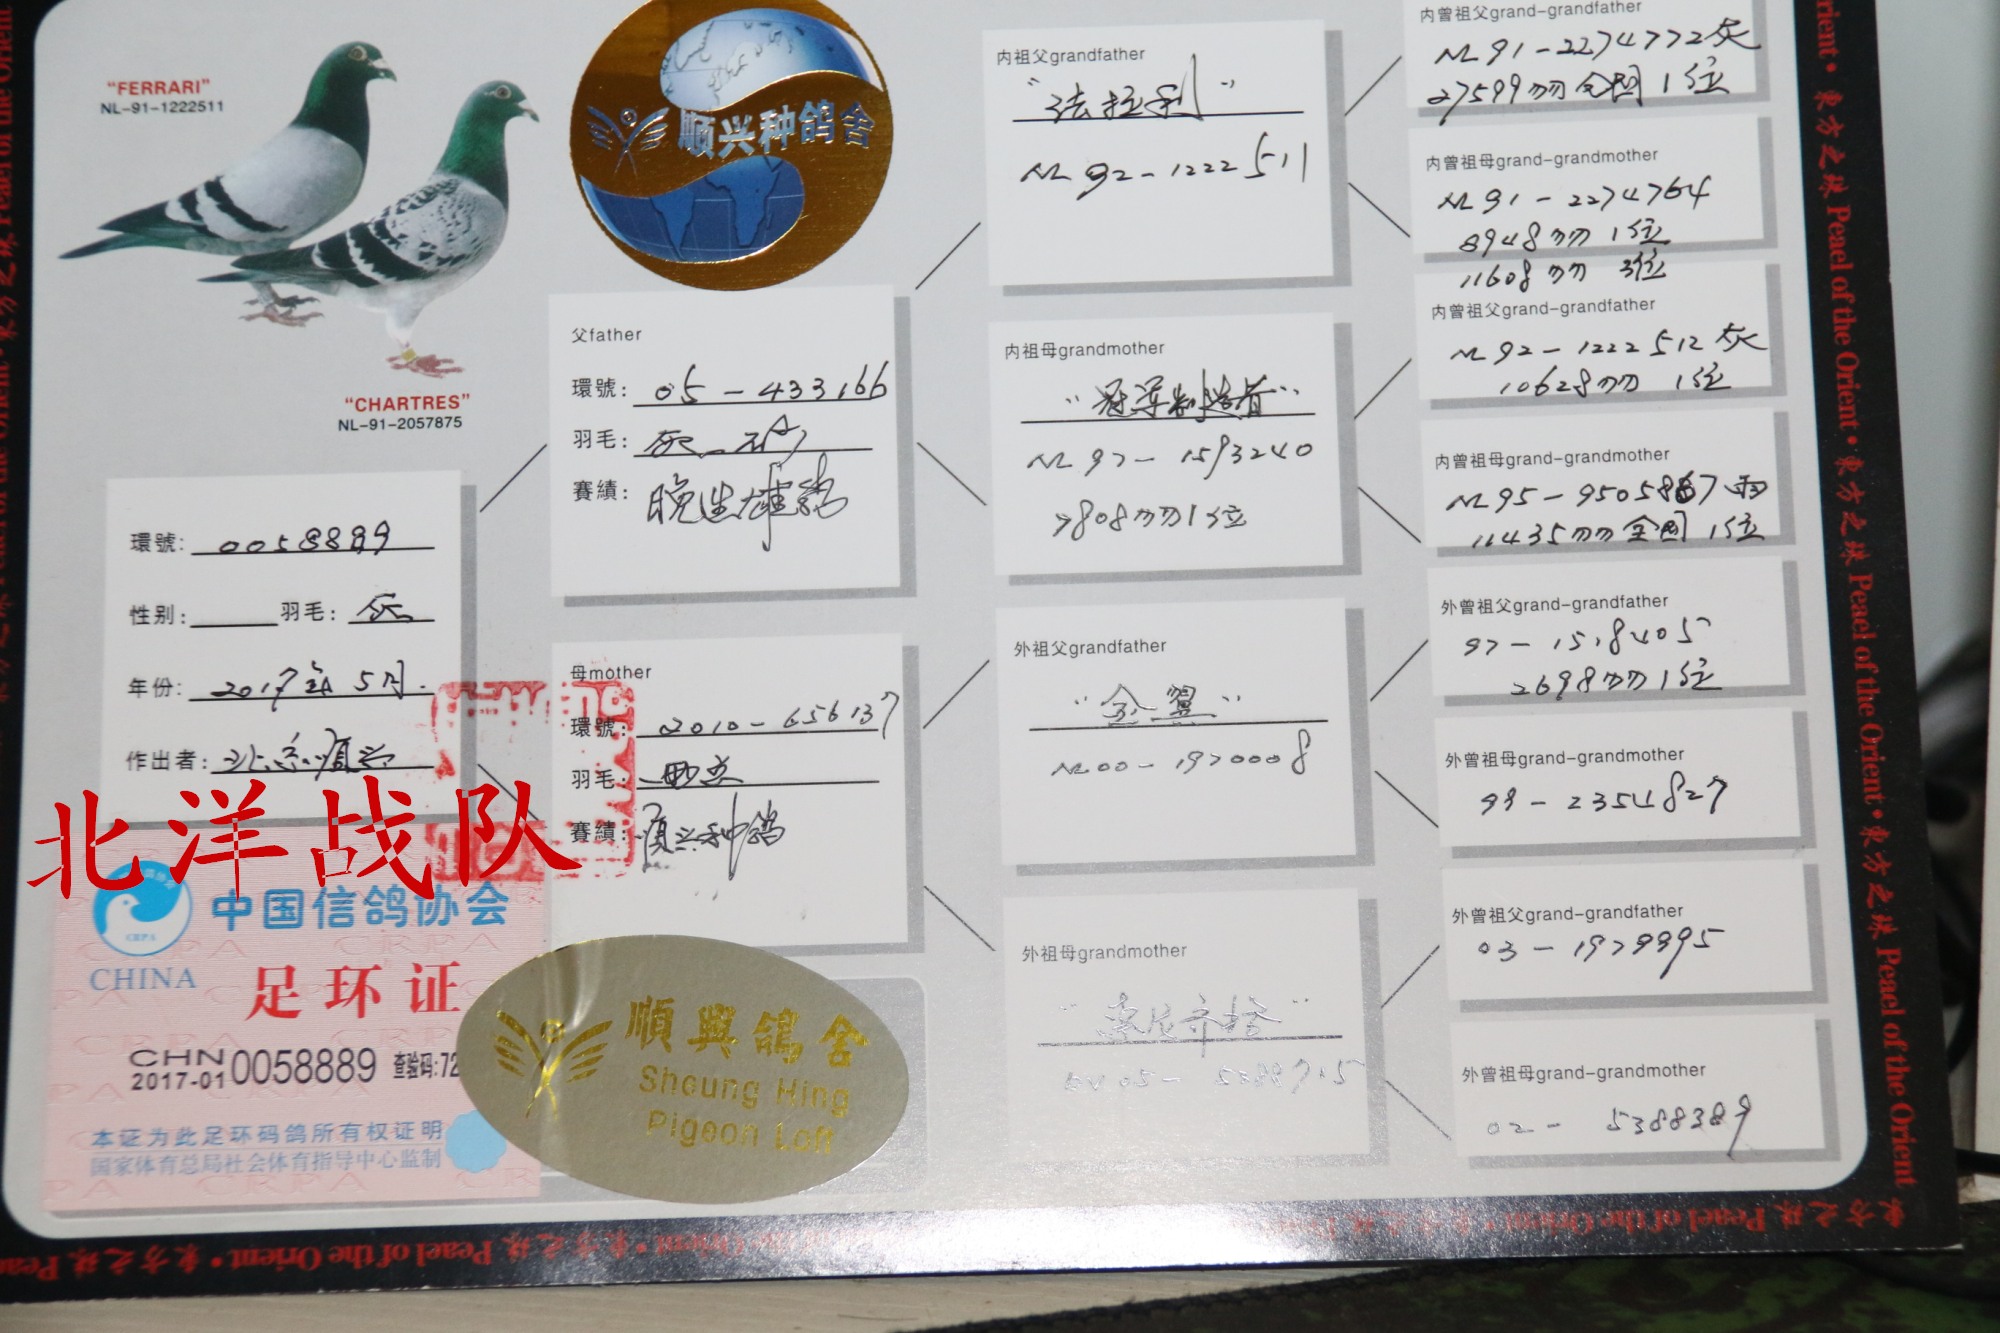 "FERRARI"
NL-91-1222511
"CHARTRES"
NL-91-2057875
顺兴种鸽舍
環號: 0058889
性别: 羽毛: 灰
年份: 2017年5月.
作出者: 北京顺兴
北洋战队
中国信鸽协会
CRPA
CHINA
足环证
CHN
2017-01 0058889 查验码:72
本证为此足环码鸽所有权证明
国家体育总局社会体育指导中心监制
順興鴿舍
Sheung Hing
Pigeon Loft
父father
環號: 05-433166
羽毛: 灰
賽績:
母mother
環號: 2010-656137
羽毛:
賽績: 顺兴种鸽
内祖父grandfather
"法拉利"
NL 92-1222511
内祖母grandmother
"冠军制造者"
NL 97-1593240
7808羽1位
外祖父grandfather
"金翼"
NL 00-1970008
外祖母grandmother
内曾祖父grand-grandfather
NL 91-2274772灰
27599羽全国1位
内曾祖母grand-grandmother
NL 91-2274764
8948羽1位
11608羽3位
内曾祖父grand-grandfather
NL 92-1222512灰
10628羽1位
内曾祖母grand-grandmother
NL 95-9505887雨
11435羽全国1位
外曾祖父grand-grandfather
97-1518405
2698羽1位
外曾祖母grand-grandmother
99-2354827
外曾祖父grand-grandfather
03-1979995
外曾祖母grand-grandmother
02-5388389
東方之珠 Peael of the Orient